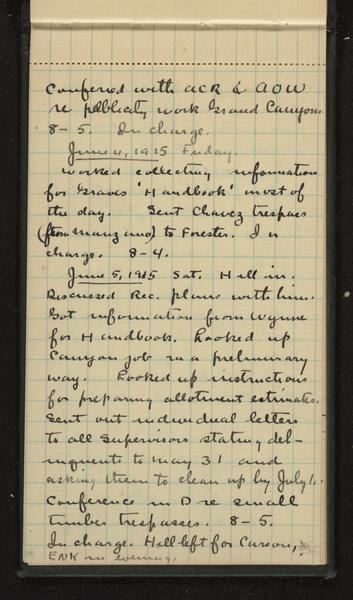 Conferred with ACR & AOW
re publicity work Grand Canyon.
8-5. In charge.
June 4, 1915 Friday
Worked collecting information
for Graves 'Handbook' most of
the day. Sent Chavez trespass
(from Manzano) to Forester. In
charge. 8-4.
June 5, 1915 Sat. Hill in.
Discussed Rec. plans with him.
Got information from Wynne
for Handbook. Looked up
Canyon job in a preliminary
way. Looked up instructions
for preparing allotment estimates.
Sent out individual letters
to all Supervisors stating del-
inquents to May 31 and
asking them to clean up by July 1.
Conference in D re small
timber trespasses. 8-5.
In charge. Hill left for Carson,
ENK in evening.